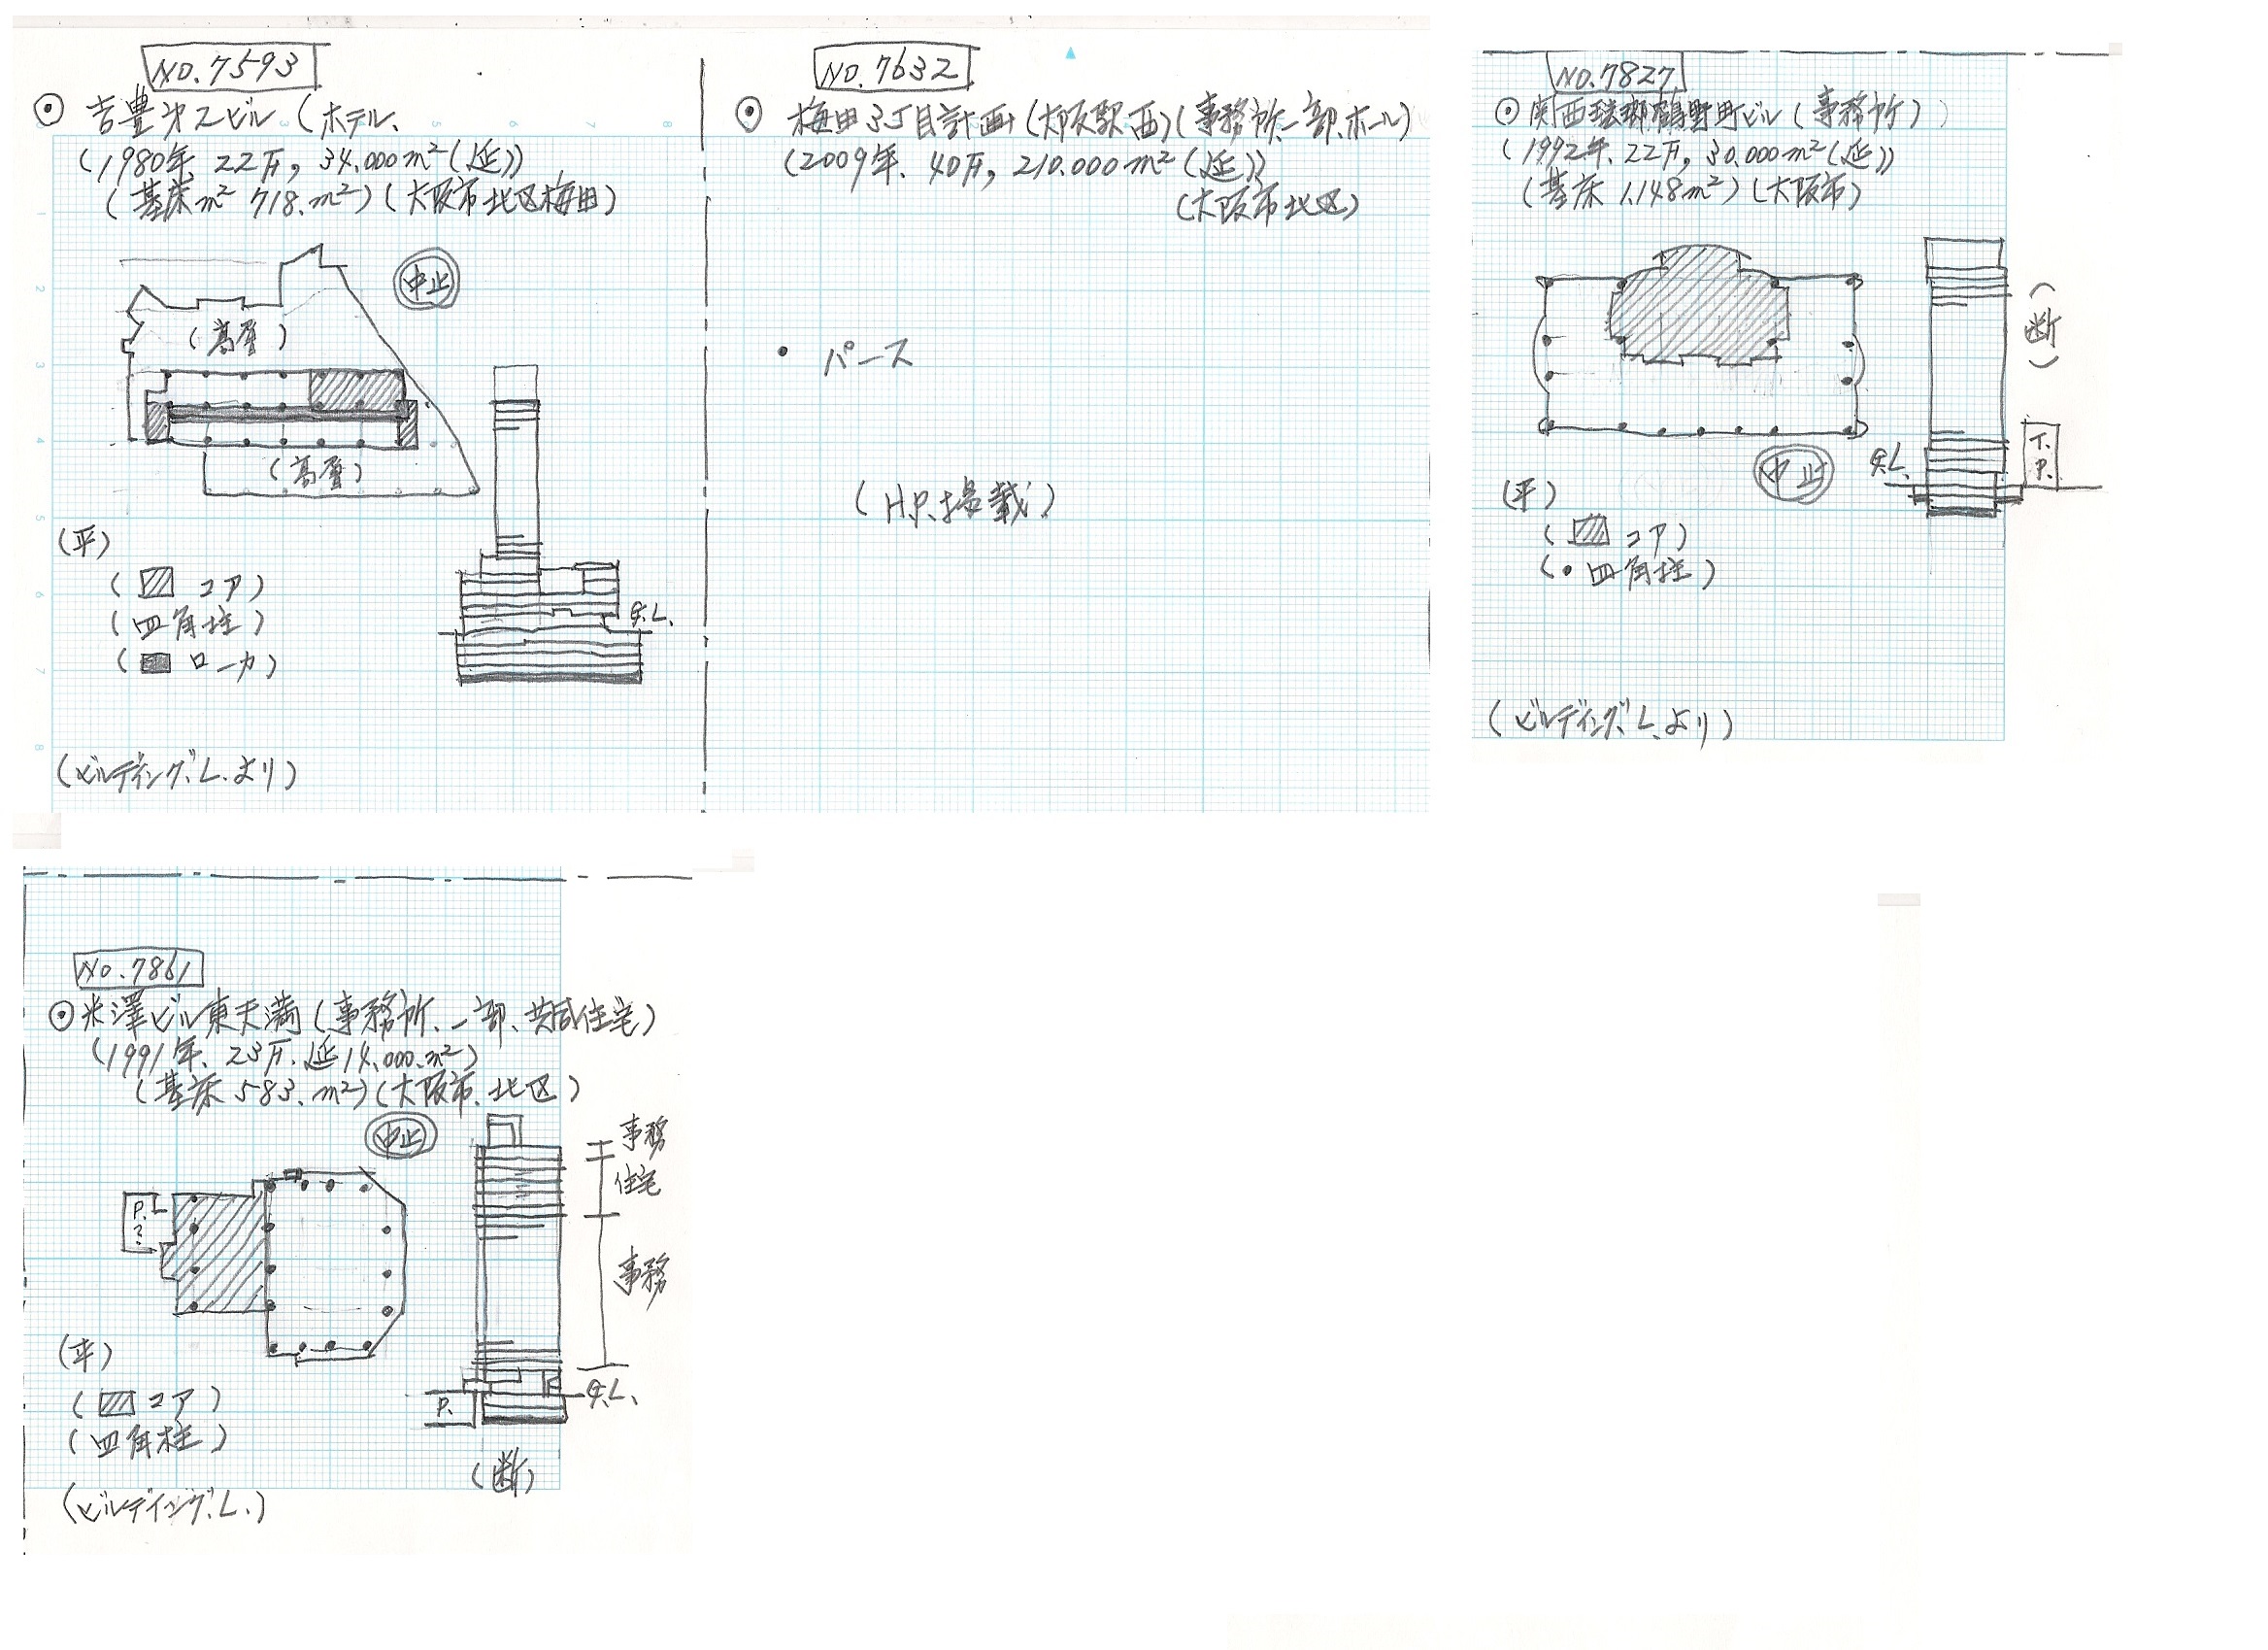 NO.7593
吉豊第2ビル(ホテル、
(1980年、22F, 34,000m²(延))
(基床m² 718.m²)(大阪市北区梅田)
中止
(高層)
(高層)
(平)
G.L.
( コア)
(四角柱)
( ローカ)
(ビルディング.L.より)
NO.7632
梅田3丁目計画(大阪駅西)(事務所、一部、ホール)
(2009年、40F, 210.000m²(延))
(大阪市北区)
・パース
(H.P.搭載)
NO.7827
(事務所)
(1992年、22F, 30.000m²(延))
(基床 1.148m²)(大阪市)
(断)
中止
G.L.
T.P.
(平)
( コア)
(・四角柱)
(ビルディング.L.より)
NO.7861
米澤ビル東天満(事務所、一部、共同住宅)
(1991年、23F、延14,000.m²)
(基床583.m²)(大阪市.北区)
中止
事務
住宅
事務
P.?
(平)
G.L.
P.
( コア)
(四角柱)
(断)
(ビルディング.L.)